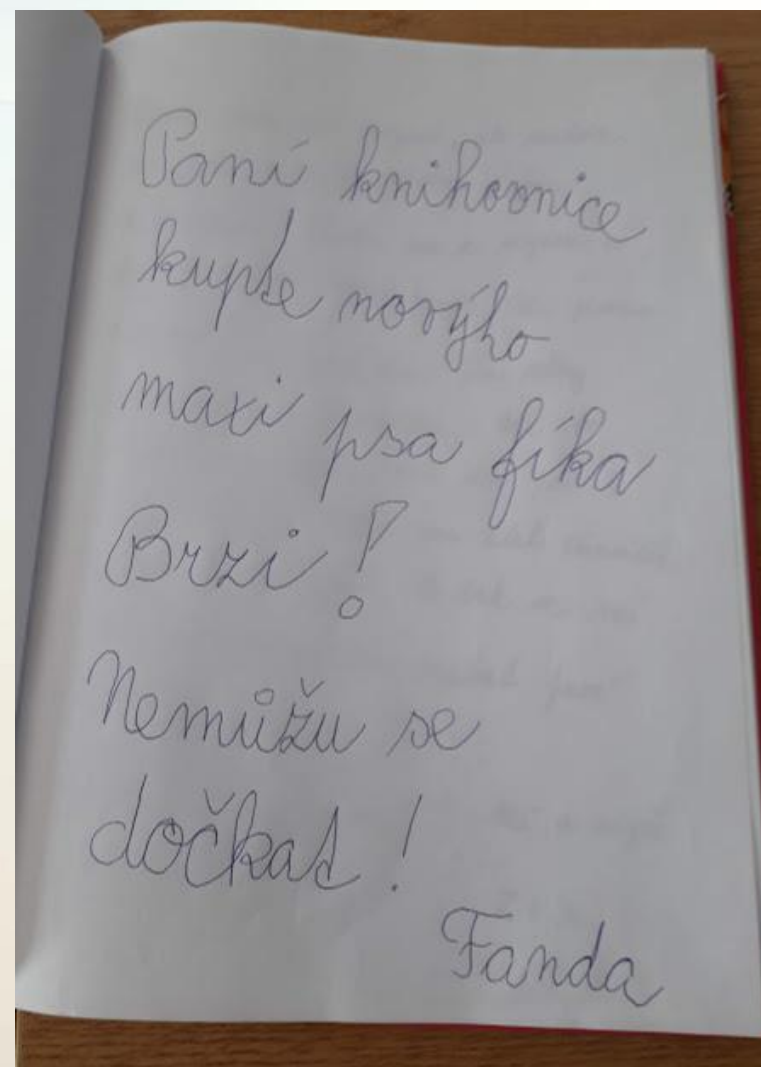 Paní knihovnice
kupte novýho
maxi psa fíka
Brzi!
Nemůžu se
dočkat!
Fanda